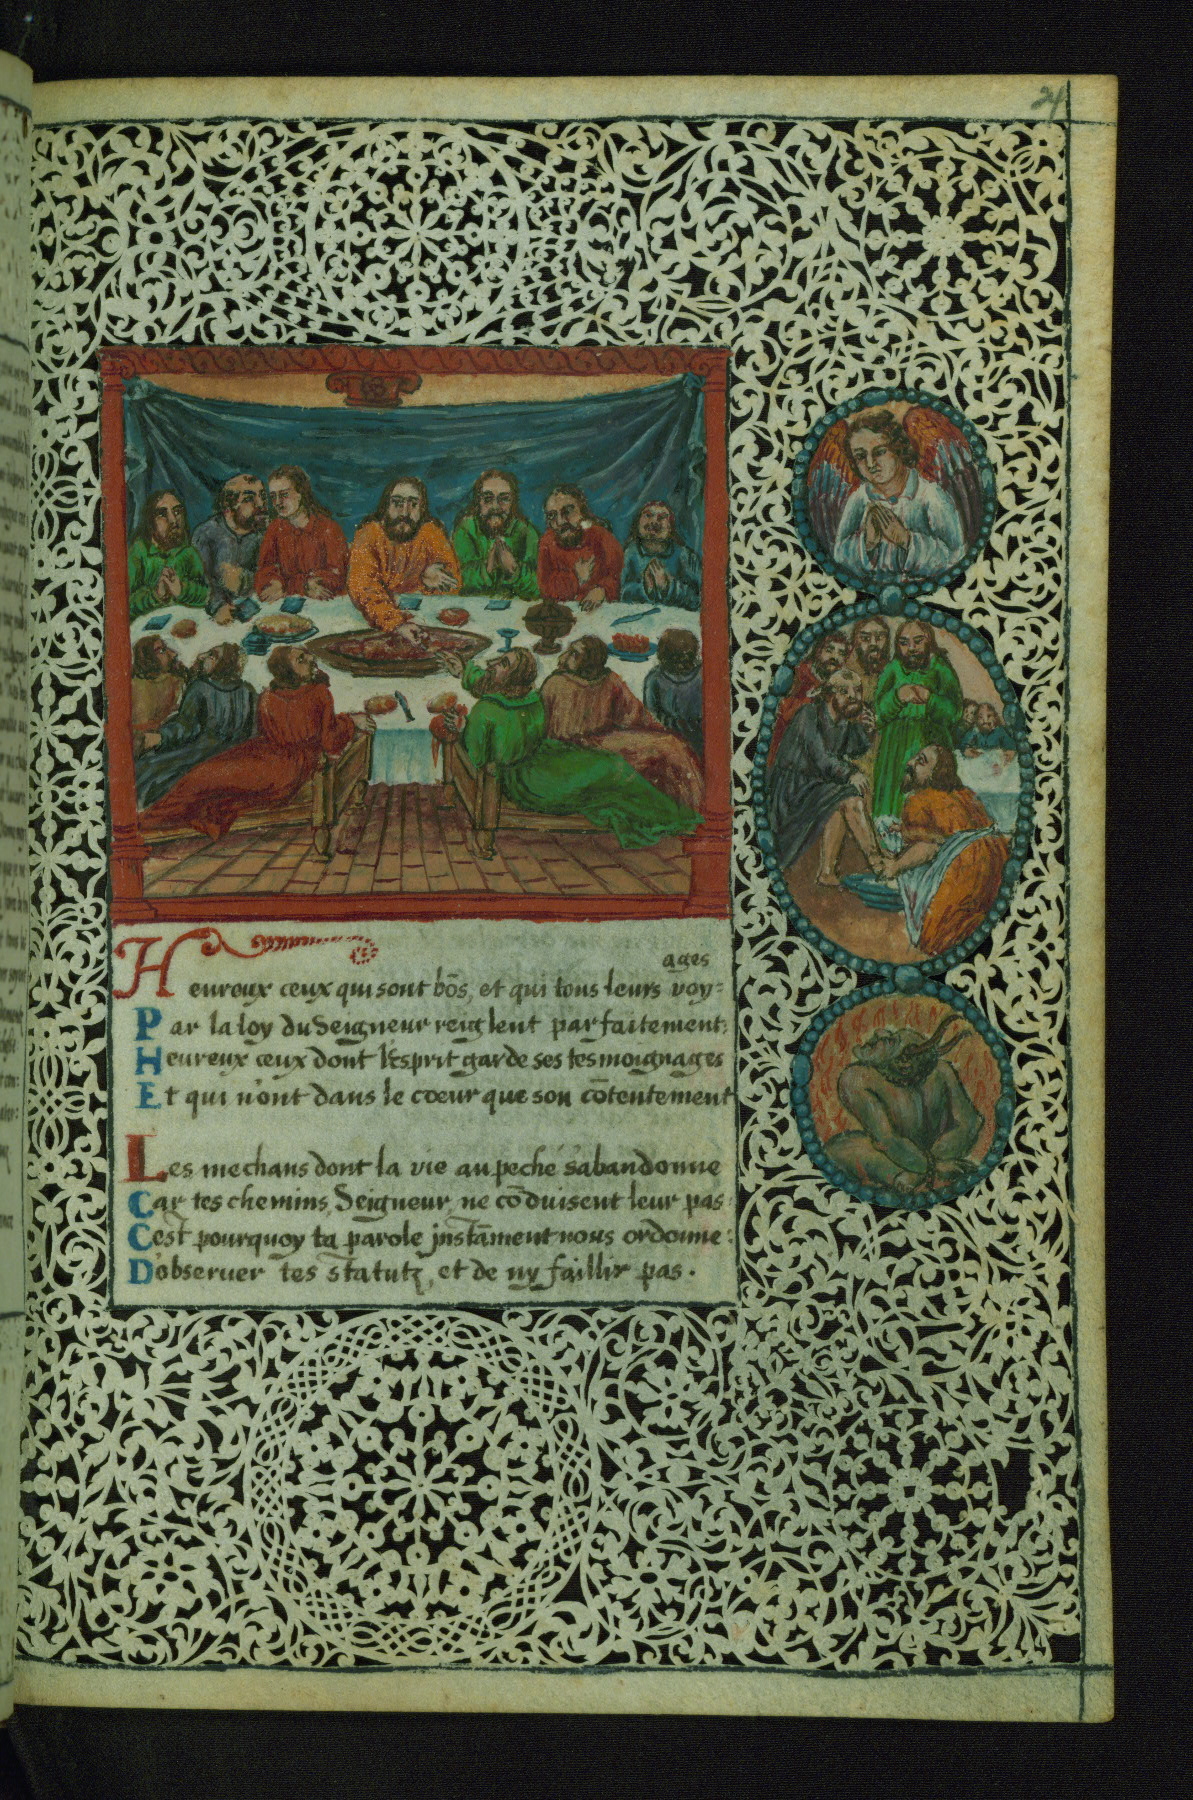 24
ages
Heureux ceux qui sont bõs, et qui tous leurs voy=
Par la loy du Seigneur reiglent parfaitement:
Heureux ceux dont l'esprit garde ses tesmoignages
Et qui n'ont dans le coeur que son cõtentement

Les mechans dont la vie au peché s'abandonne
Car tes chemins, Seigneur, ne cõduisent leur pas:
C'est pourquoy ta parole jnstãment nous ordonne:
D'obseruer tes statutz, et de ny faillir pas.